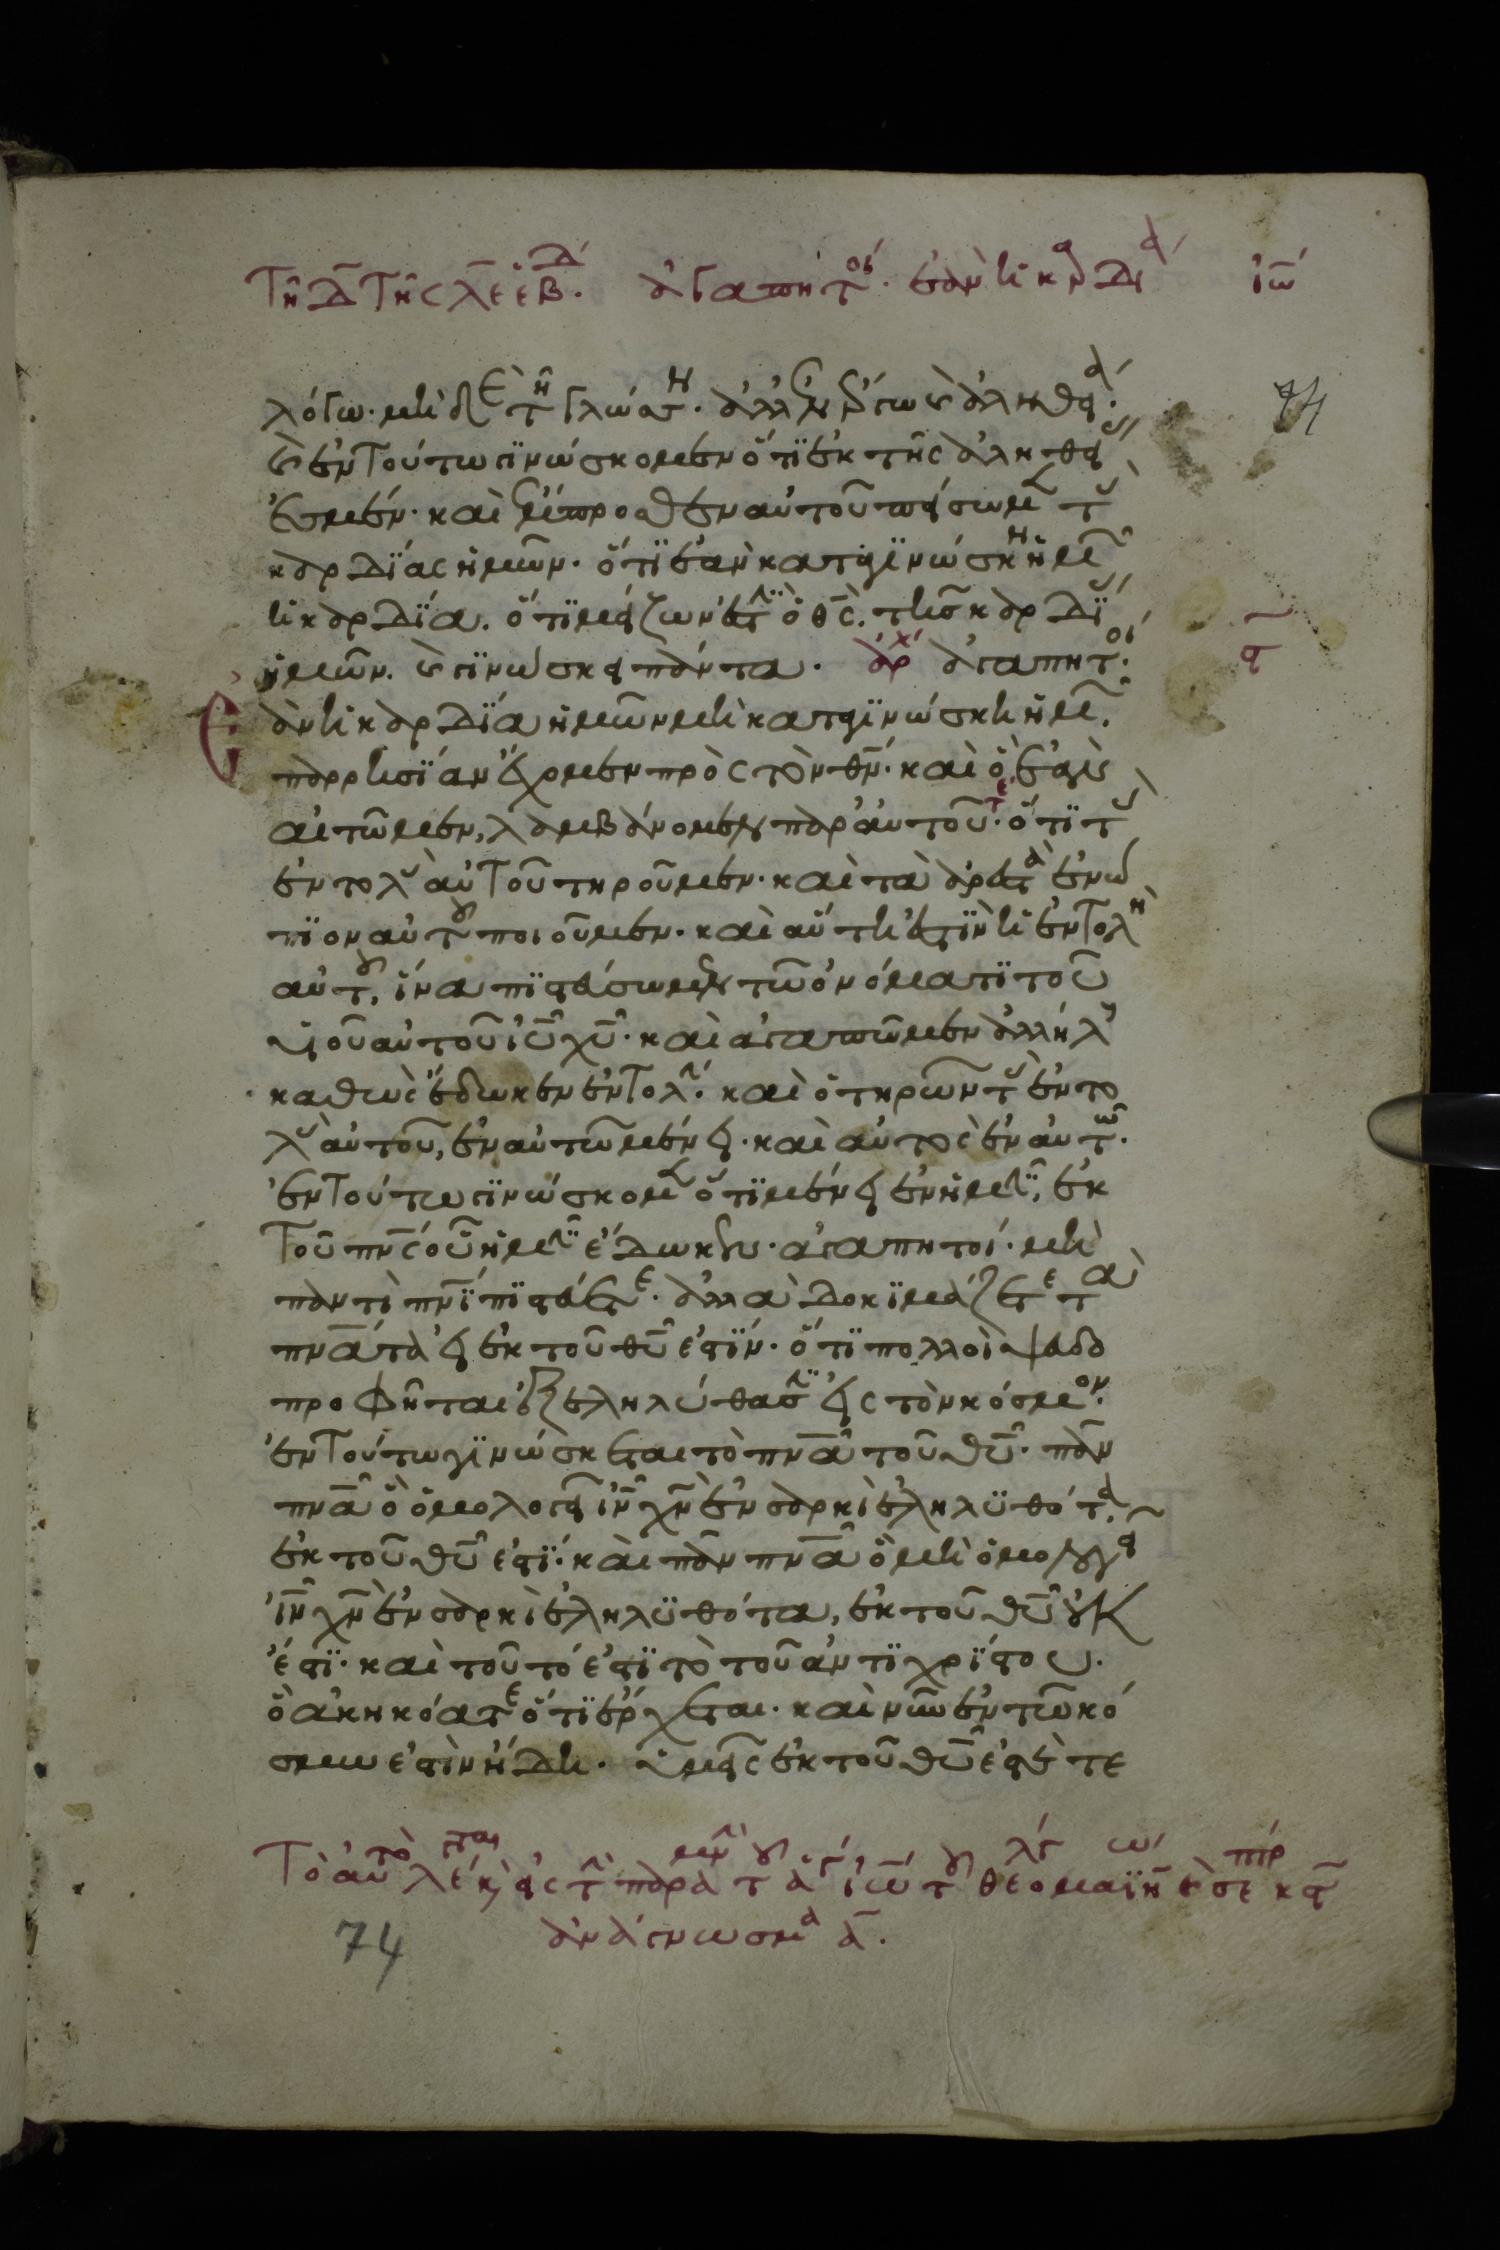 Τῆ Δ τῆς λε ἑβδ. ἀγαπητοί. ἐὰν ἡ καρδία ἰω
λόγω. μὴ δὲ τῆ γλώσση. ἀλλ' ἐν ἔργω καὶ ἀληθεία.
καὶ ἐν τούτω γινώσκομεν ὅτι ἐκ τῆς ἀληθείας
74
ἐσμέν. καὶ ἔμπροσθεν αὐτοῦ πείσωμεν τὰς
καρδίας ἡμῶν. ὅτι ἐὰν καταγινώσκη ἡμῶν
ἡ καρδία. ὅτι μείζων ἐστὶν ὁ θς. τῆς καρδίας
ἡμῶν. καὶ γινώσκει πάντα. ἀρχ ἀγαπητοί.
Ἐὰν ἡ καρδία ἡμῶν μὴ καταγινώσκη ἡμῶν,
παρρησίαν ἔχομεν πρὸς τὸν θν. καὶ ὃ ἐὰν
αἰτῶμεν, λαμβάνομεν παρ' αὐτοῦ. ὅτι τὰς
ἐντολὰς αὐτοῦ τηροῦμεν. καὶ τὰ ἀρεστὰ ἐνώ
πιον αὐτοῦ ποιοῦμεν. καὶ αὕτη ἐστὶν ἡ ἐντολὴ
αὐτοῦ, ἵνα πιστεύσωμεν τῶ ὀνόματι τοῦ
υἱοῦ αὐτοῦ ιυ χυ. καὶ ἀγαπῶμεν ἀλλήλους
καθὼς ἔδωκεν ἐντολήν. καὶ ὁ τηρῶν τὰς ἐντο
λὰς αὐτοῦ, ἐν αὐτῶ μένει. καὶ αὐτὸς ἐν αὐτῶ.
ἐν τούτω γινώσκομεν ὅτι μένει ἐν ἡμῖν, ἐκ
τοῦ πνς οὗ ἡμῖν ἔδωκεν. ἀγαπητοί. μὴ
παντὶ πνι πιστεύετε. ἀλλὰ δοκιμάζετε τὰ
πνατα εἰ ἐκ τοῦ θυ ἐστίν. ὅτι πολλοὶ ψευδο
προφῆται ἐξεληλύθασιν εἰς τὸν κόσμον.
ἐν τούτω γινώσκεται τὸ πνα τοῦ θυ. πᾶν
πνα ὃ ὁμολογεῖ ιν χν ἐν σαρκὶ ἐληλυθότα,
ἐκ τοῦ θυ ἐστί. καὶ πᾶν πνα ὃ μὴ ὁμολογεῖ
ιν χν ἐν σαρκὶ ἐληλυθότα, ἐκ τοῦ θυ οὐκ
ἔστι. καὶ τοῦτό ἐστι τὸ τοῦ ἀντιχρίστου.
ὃ ἀκηκόατε ὅτι ἔρχεται. καὶ νῦν ἐν τῶ κό
σμω ἐστὶν ἤδη. ὑμεῖς ἐκ τοῦ θυ ἐστέ τε
74
ἀνάγνωσμα α.